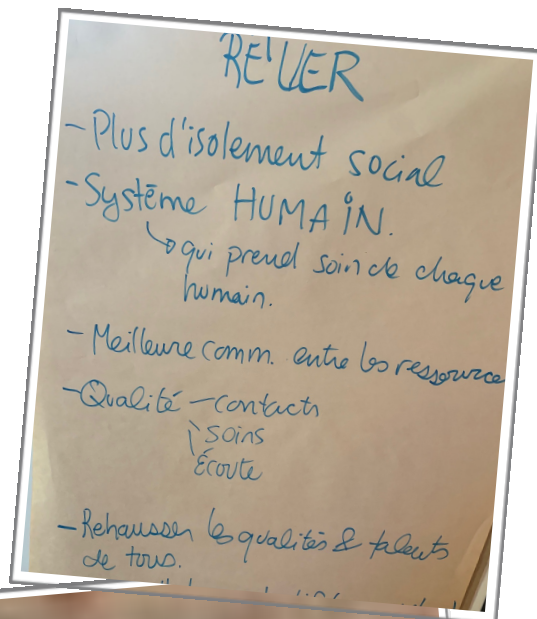 RÊVER
- Plus d'isolement social
- Système HUMAIN.
↳ qui prend soin de chaque
humain.
- Meilleure comm. entre les ressource
- Qualité - contacts
\ soins
Écoute
- Rehausser les qualités & talents
de tous.